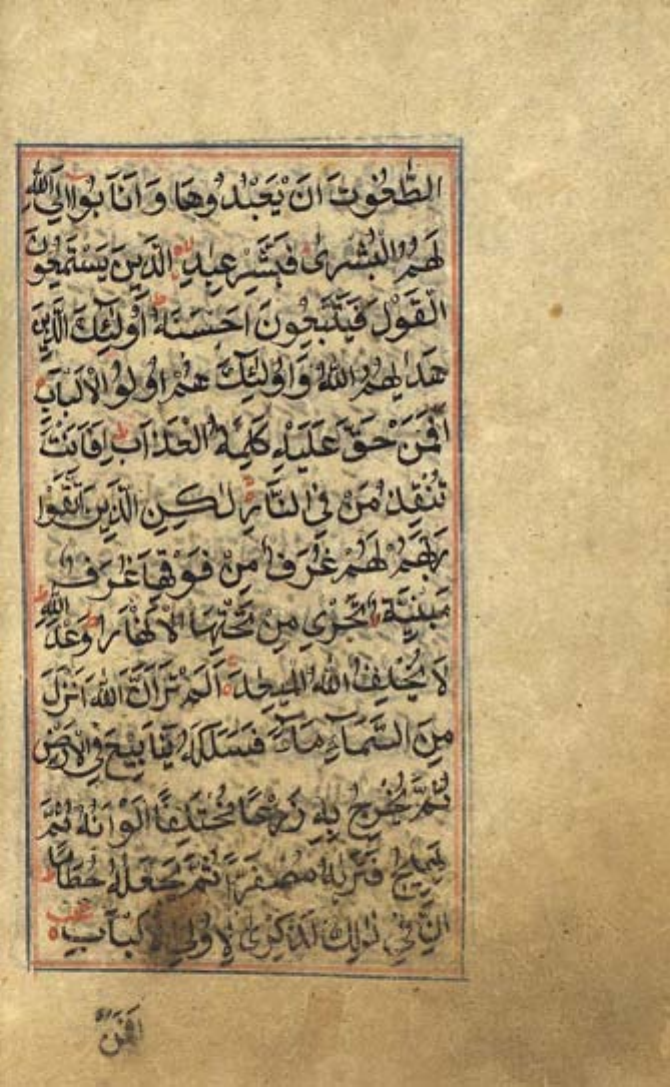 الطَّٰغُوْتَ اَنْ يَّعْبُدُوْهَا وَ اَنَابُوْٓا اِلَى اللّٰهِ
لَهُمُ الْبُشْرٰى فَبَشِّرْ عِبَادِ الَّذِيْنَ يَسْتَمِعُوْنَ
الْقَوْلَ فَيَتَّبِعُوْنَ اَحْسَنَهٗ ط اُولٰٓئِكَ الَّذِيْنَ
هَدٰىهُمُ اللّٰهُ وَاُولٰٓئِكَ هُمْ اُولُوا الْاَلْبَابِ
اَفَمَنْ حَقَّ عَلَيْهِ كَلِمَةُ الْعَذَابِ ط اَفَاَنْتَ
تُنْقِذُ مَنْ فِي النَّارِ لٰكِنِ الَّذِيْنَ اتَّقَوْا
رَبَّهُمْ لَهُمْ غُرَفٌ مِّنْ فَوْقِهَا غُرَفٌ
مَّبْنِيَّةٌ تَجْرِيْ مِنْ تَحْتِهَا الْاَنْهٰرُ ط وَعْدَ اللّٰهِ ط
لَا يُخْلِفُ اللّٰهُ الْمِيْعَادَ اَلَمْ تَرَ اَنَّ اللّٰهَ اَنْزَلَ
مِنَ السَّمَآءِ مَآءً فَسَلَكَهٗ يَنَابِيْعَ فِي الْاَرْضِ
ثُمَّ يُخْرِجُ بِهٖ زَرْعًا مُّخْتَلِفًا اَلْوَانُهٗ ثُمَّ
يَهِيْجُ فَتَرٰىهُ مُصْفَرًّا ثُمَّ يَجْعَلُهٗ حُطَامًا ط
اِنَّ فِيْ ذٰلِكَ لَذِكْرٰى لِاُولِي الْاَلْبَابِ
اَفَمَنْ